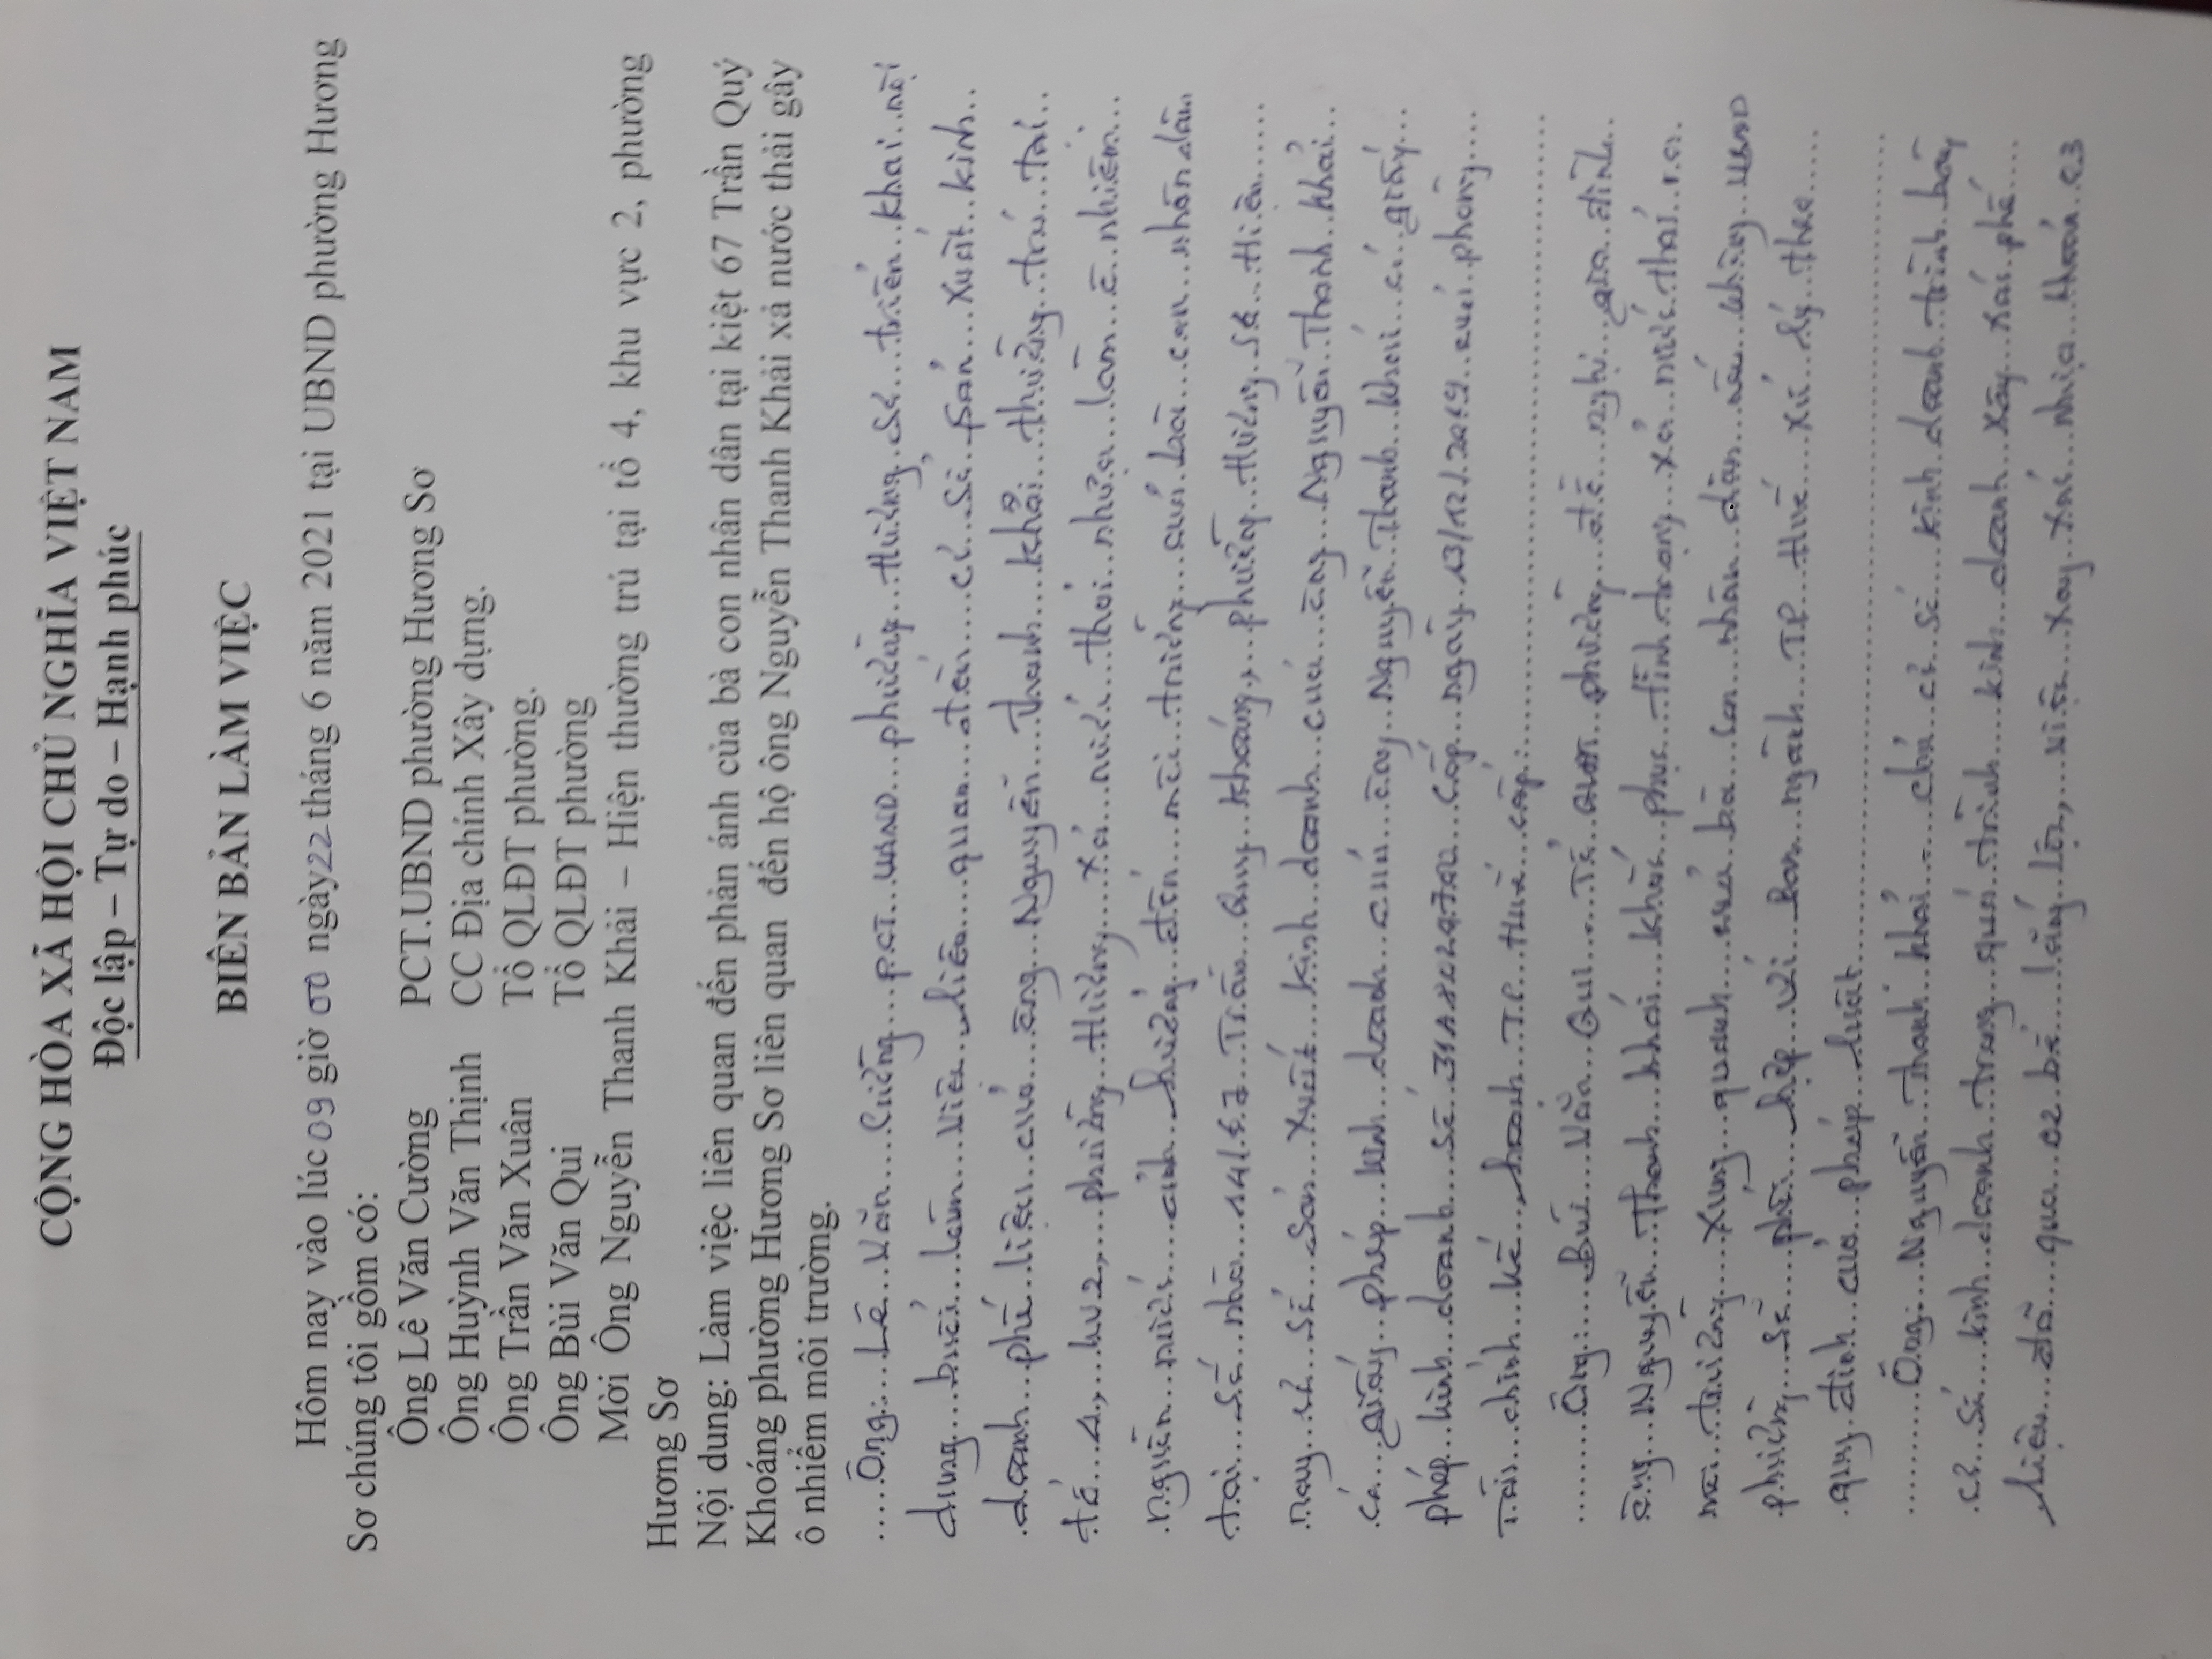 CỘNG HÒA XÃ HỘI CHỦ NGHĨA VIỆT NAM
Độc lập – Tự do – Hạnh phúc
BIÊN BẢN LÀM VIỆC
Hôm nay vào lúc 09 giờ 00 ngày 22 tháng 6 năm 2021 tại UBND phường Hương
Sơ chúng tôi gồm có:
Ông Lê Văn Cường PCT.UBND phường Hương Sơ
Ông Huỳnh Văn Thịnh CC Địa chính Xây dựng.
Ông Trần Văn Xuân Tổ QLĐT phường.
Ông Bùi Văn Qui Tổ QLĐT phường
Mời Ông Nguyễn Thanh Khải – Hiện thường trú tại tổ 4, khu vực 2, phường
Hương Sơ
Nội dung: Làm việc liên quan đến phản ánh của bà con nhân dân tại kiệt 67 Trần Quý
Khoáng phường Hương Sơ liên quan đến hộ ông Nguyễn Thanh Khải xả nước thải gây
ô nhiễm môi trường.
Ông: Lê Văn Cường PCT UBND phường Hương Sơ triển khai nội
dung buổi làm việc liên quan đến cơ sở sản xuất kinh
doanh phế liệu của ông Nguyễn Thanh Khải thường trú tại
tổ 4, kv2, phường Hương xả nước thải nhựa làm ô nhiễm
nguồn nước ảnh hưởng đến môi trường của bà con nhân dân
tại số nhà 67 Trần Quý Khoáng, phường Hương Sơ. Hiện
nay cơ sở sản xuất kinh doanh của ông Nguyễn Thanh Khải
có giấy phép kinh doanh của ông Nguyễn Thanh Khải có giấy
phép kinh doanh số cấp ngày 13/12/2019 của phòng
Tài chính kế hoạch T.P Huế cấp.
Ông: Bùi Văn Qui Tổ phường đề nghị gia đình
ông Nguyễn Thanh Khải khắc phục tình trạng xả nước thải ra
môi trường xung quanh của bà con nhân dân nếu không UBND
phường sẽ phối hợp với Ban ngành T.P Huế xử lý theo
quy định của pháp luật
Ông: Nguyễn Thanh Khải chủ cơ sở kinh doanh trình bày
cơ sở kinh doanh trong quá trình kinh doanh xay xát phế
liệu đã qua 02 bể lắng lọc, việc xay xát nhựa 03